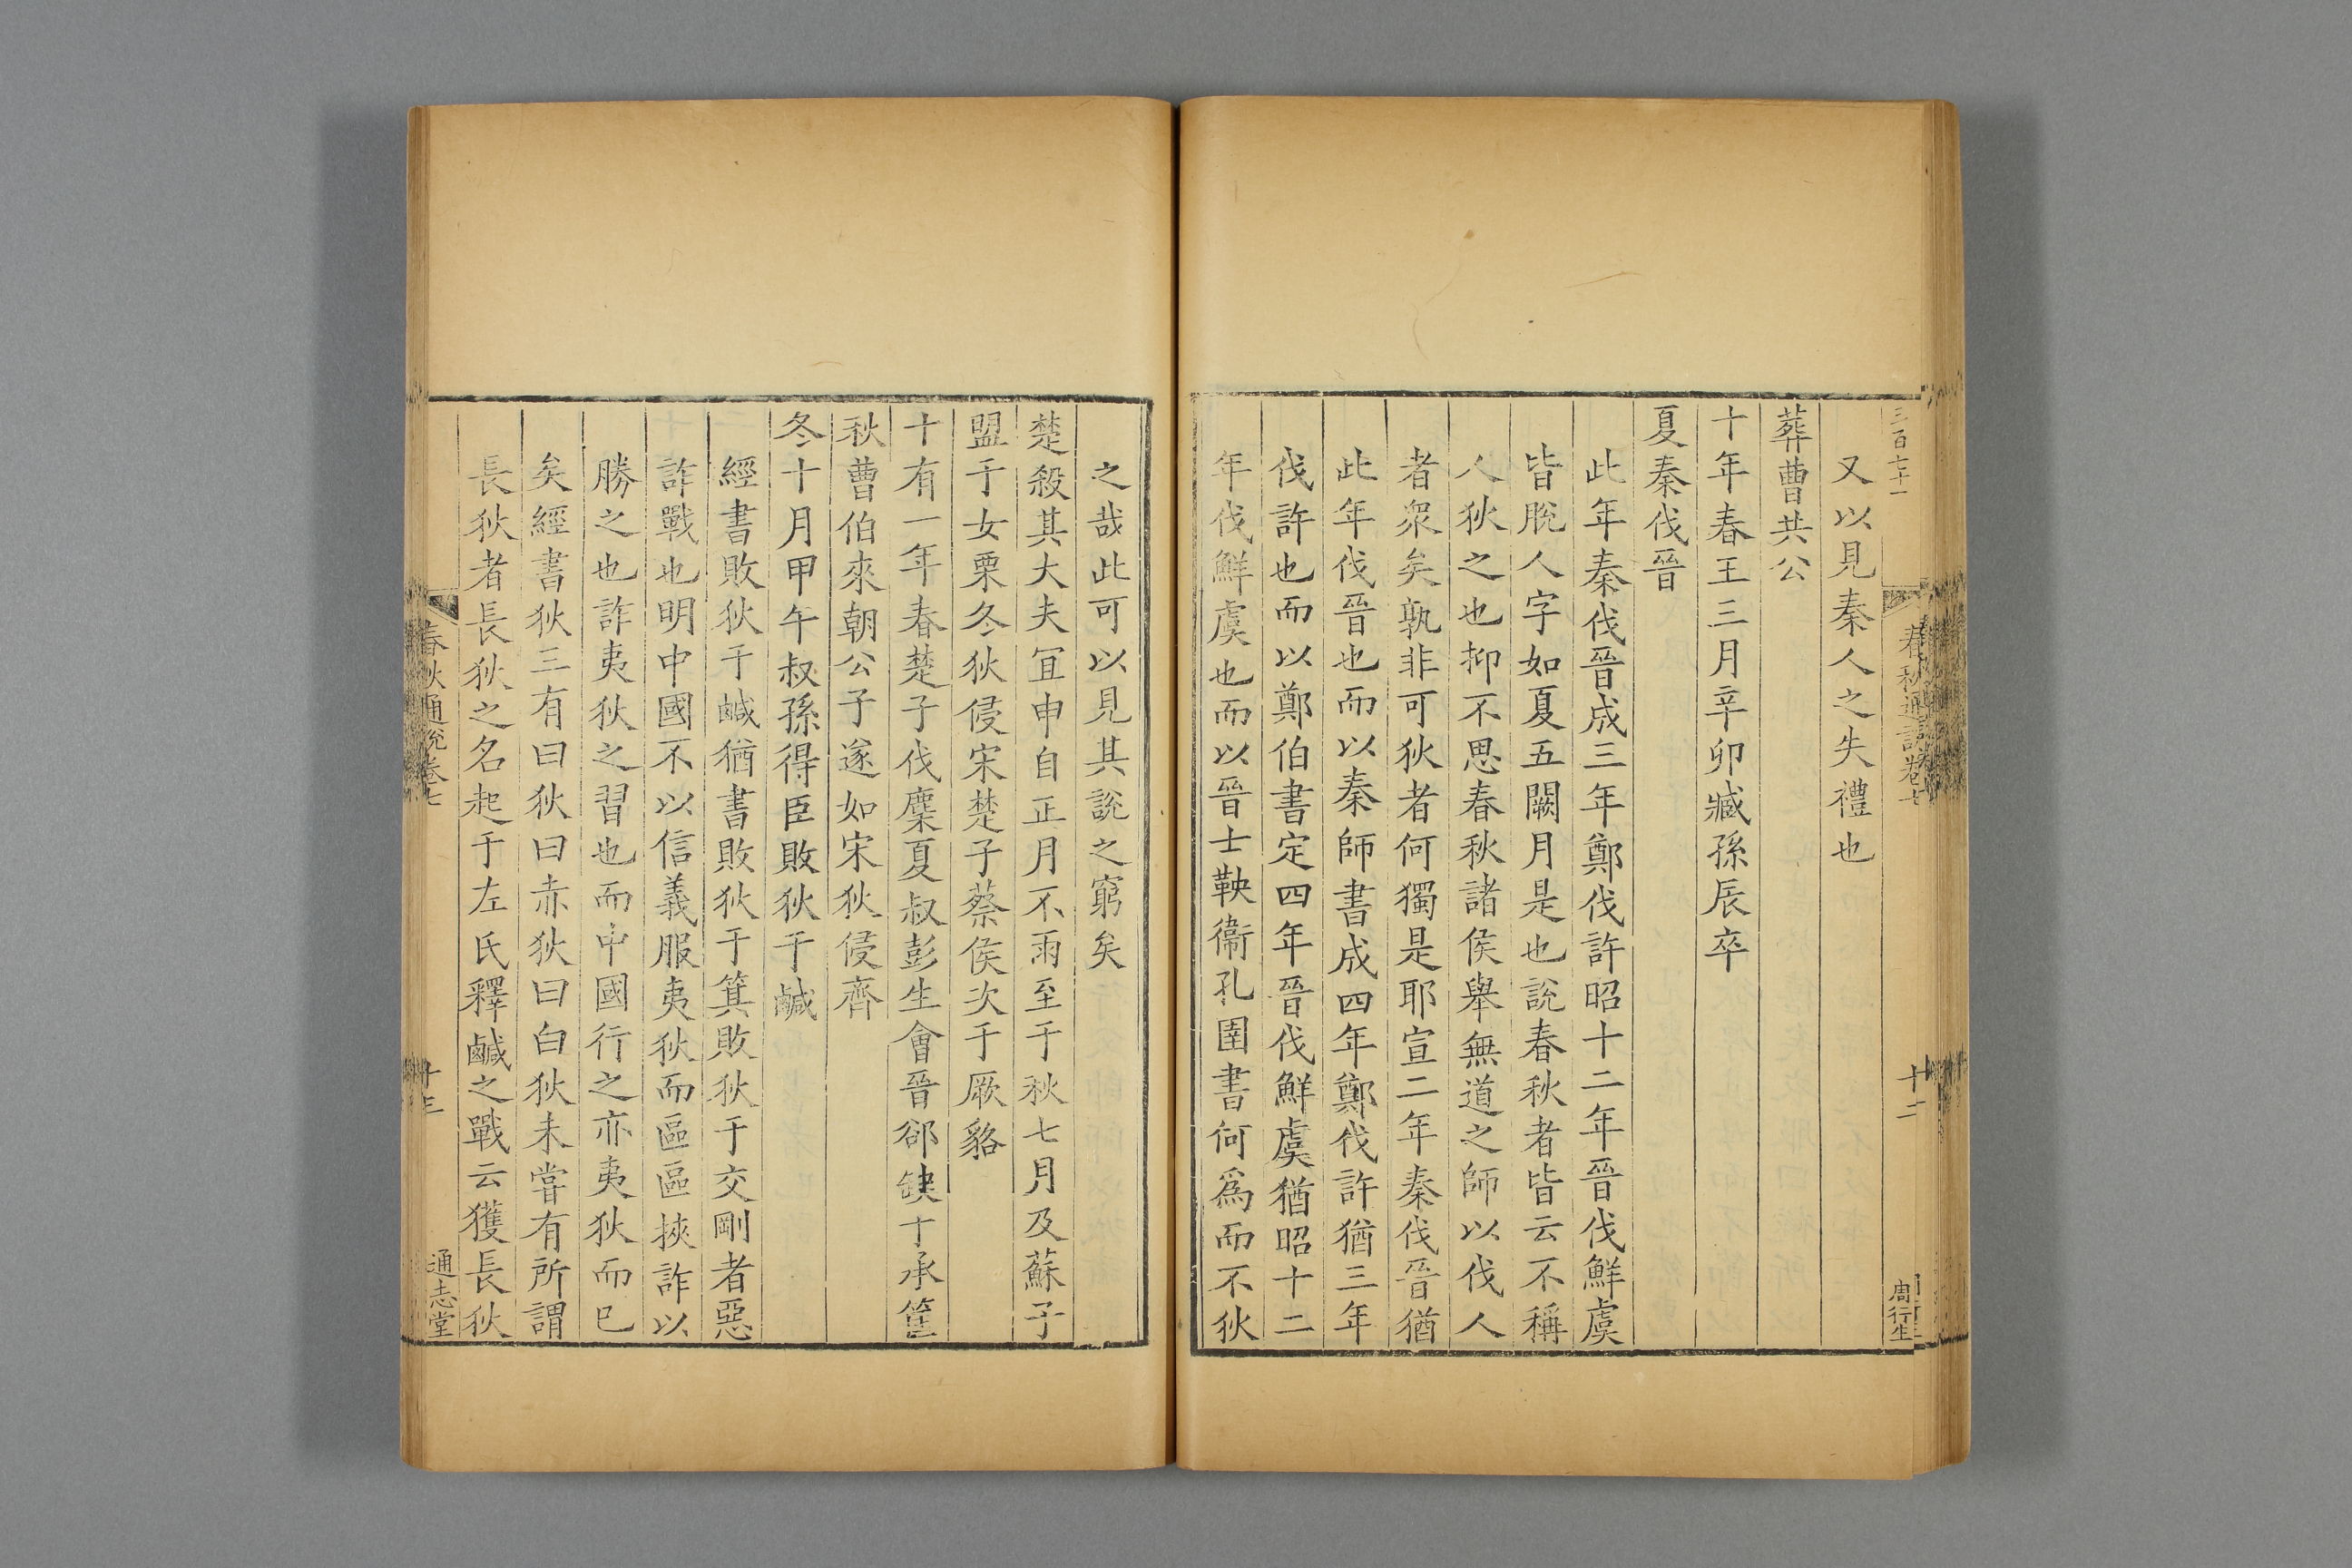 三百七十一
春秋通說卷七
十二
周行生
又以見秦人之失禮也
葬曹共公
十年春王三月辛卯臧孫辰卒
夏秦伐晉
此年秦伐晉成三年鄭伐許昭十二年晉伐鮮虞
皆脫人字如夏五闕月是也說春秋者皆云不稱
人狄之也抑不思春秋諸侯舉無道之師以伐人
者衆矣孰非可狄者何獨是耶宣二年秦伐晉猶
此年伐晉也而以秦師書成四年鄭伐許猶三年
伐許也而以鄭伯書定四年晉伐鮮虞猶昭十二
年伐鮮虞也而以晉士鞅衞孔圉書何爲而不狄
之哉此可以見其說之窮矣
楚殺其大夫宜申自正月不雨至于秋七月及蘇子
盟于女栗冬狄侵宋楚子蔡侯次于厥貉
十有一年春楚子伐麇夏叔彭生會晉郤缺于承筐
秋曹伯來朝公子遂如宋狄侵齊
冬十月甲午叔孫得臣敗狄于鹹
經書敗狄于鹹猶書敗狄于箕敗狄于交剛者惡
詐戰也明中國不以信義服夷狄而區區挾詐以
勝之也詐夷狄之習也而中國行之亦夷狄而已
矣經書狄三有曰狄曰赤狄曰白狄未嘗有所謂
長狄者長狄之名起于左氏釋鹹之戰云獲長狄
春秋通說卷七
十三
通志堂